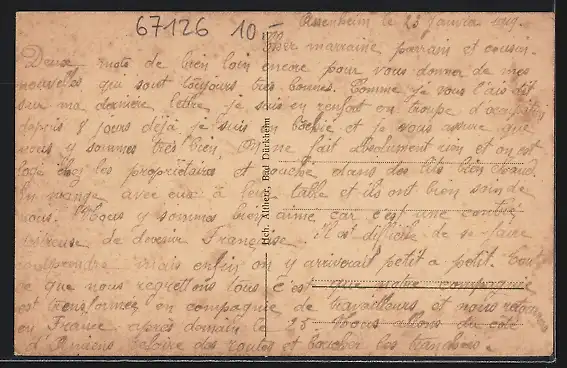 67126 10.-
Assenheim le 23 Janvier 1919.
Cher marraine parrain et cousin.
Deux mots de bien loin encore pour vous donner de mes
nouvelles qui sont toujours très bonnes. Comme je vous l'ais dit
sur ma dernière lettre je suis en renfort en troupe d'occupation
depuis 8 jours déjà je suis en Bochie et je vous assure que
nous y sommes très bien. On ne fait absolument rien et on est
logé chez les propriétaires et couché dans des lits bien chaud.
On mange avec eux à leur table et ils ont bien soin de
nous. Nous y sommes bien aimé car c'est une contrée
de devenir Française. Il est difficile de se faire
comprendre mais enfin on y arriverait petit a petit. Tout
ce que nous regrettons tous c'est que notre compagnie
est transformer en compagnie de travailleurs et nous retournons
en France après demain le 25 Nous allons du côté
d'Amiens refaire des routes et boucher les tranchées.
Hch. Atherr, Bad Dürkheim